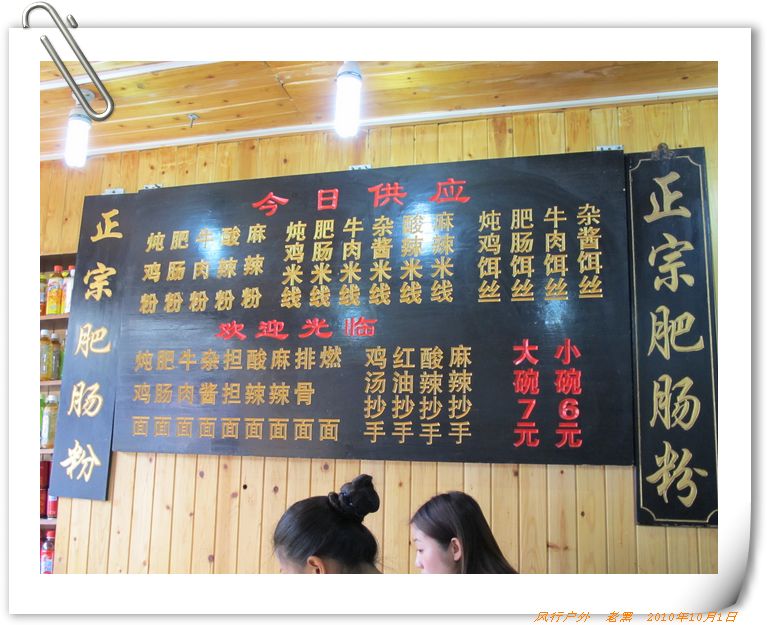 正宗肥肠粉
今日供应
炖鸡粉
肥肠粉
牛肉粉
酸辣粉
麻辣粉
炖鸡米线
肥肠米线
牛肉米线
杂酱米线
酸辣米线
麻辣米线
炖鸡饵丝
肥肠饵丝
牛肉饵丝
杂酱饵丝
欢迎光临
炖鸡面
肥肠面
牛肉面
杂酱面
担担面
酸辣面
麻辣面
排骨面
燃面
鸡汤抄手
红油抄手
酸辣抄手
麻辣抄手
大碗7元
小碗6元
正宗肥肠粉
风行户外 老黑 2010年10月1日